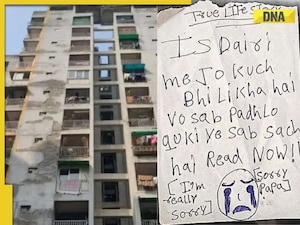 DNA
True Life Story
Is Dairi
me Jo kuch
Bhi Likha hai
Vo sab Padhlo
quki ye sab sach
hai Read NOW!!
[I'm really sorry]
[Sorry Papa]